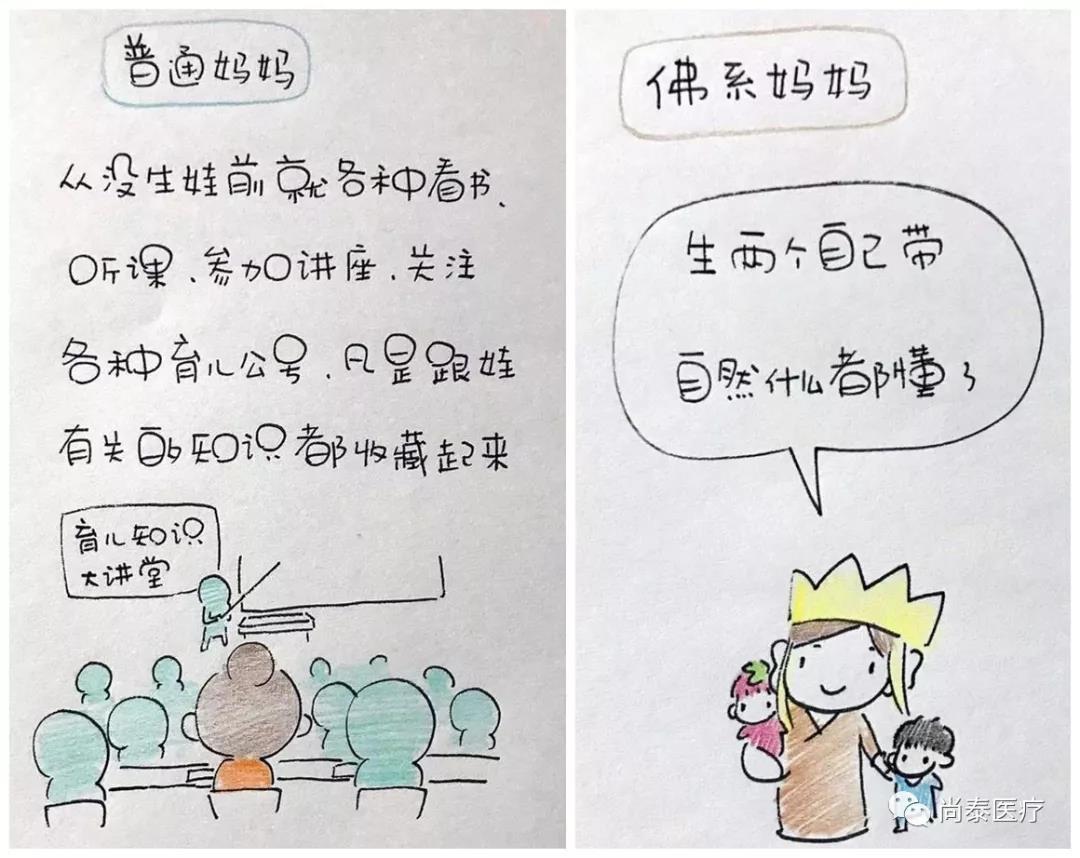 普通妈妈
从没生娃前就各种看书、
听课、参加讲座、关注
各种育儿公号、凡是跟娃
有关的知识都收藏起来
育儿知识
大讲堂
佛系妈妈
生两个自己带
自然什么都懂了
尚泰医疗